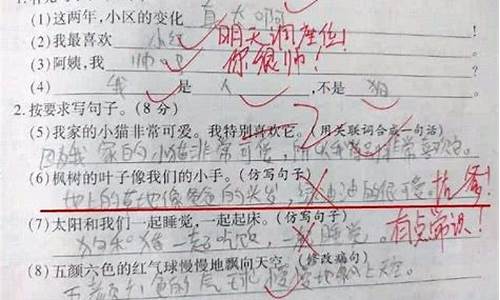 (1)这两年,小区的变化 真大啊
(2)我最喜欢 小红 明天调座位!
(3)阿姨,我 帅 你很帅!
(4) 我 是 人 ,不是 狗
2.按要求写句子。(8分)
(5)我家的小猫非常可爱。我特别喜欢它。(用关联词合成一句话)
因为我家的小猫非常可爱,所以我 非常喜欢它。
(6)枫树的叶子像我们的小手。(仿写句子)
地上的草地像爸爸的头发,绿油油的很可爱。 抗争!
(7)太阳和我们一起睡觉,一起起床。(仿写句子)
狗和猪一起吃饭,一起睡觉。 有点常识!
(8)五颜六色的红气球慢慢地飘向天空。(修改病句)
五颜六色的气球慢慢地飘上天空。